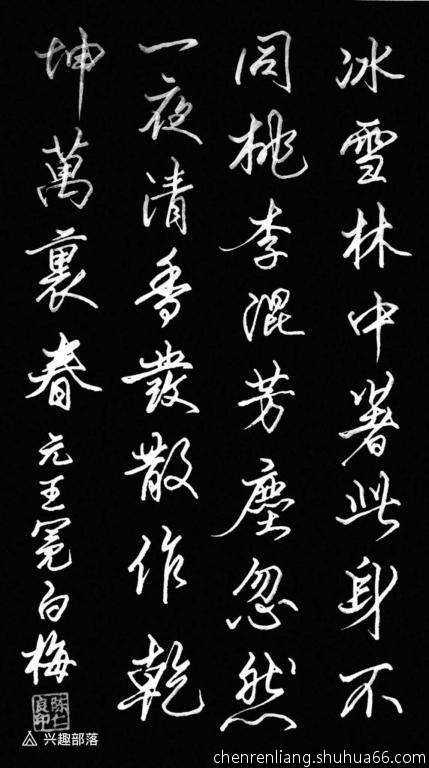 冰雪林中著此身不
同桃李混芳塵忽然
一夜清香發散作乾
坤萬裏春元王冕白梅
陈仁良印
兴趣部落
chenrenliang.shuhua66.com